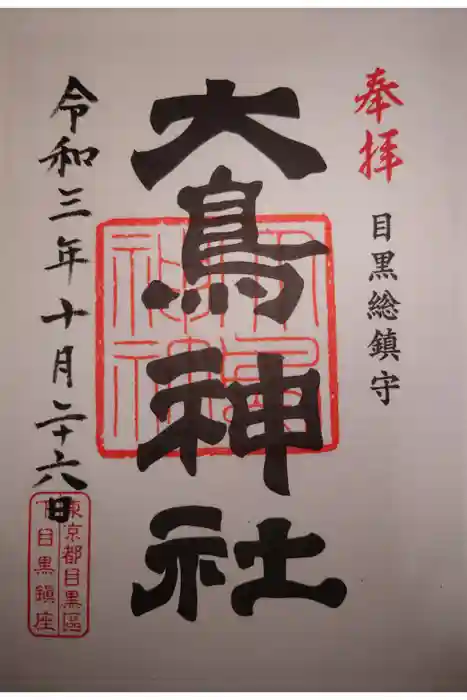 奉拝
目黒総鎮守
大鳥神社
令和三年十月二十六日
東京都目黒區
下目黒鎮座